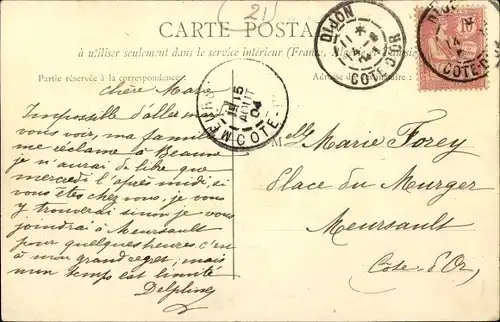 CARTE POSTALE
(21)
à utiliser seulement dans le service intérieur (France, Algérie
Partie réservée à la correspondance.
Adresse du
DIJON
14
CÔTE-D'OR
DIJON
14
CÔTE-D'OR
10
MEURSAULT
15
AOUT
04
CÔTE-D'OR
Chère Marie,
Impossible d'aller
vous voir, ma famille
me réclame à Beaune
je n'aurai de libre que
mercredi l'après midi, si
vous êtes chez vous, je vous
y trouverai sinon je vous
joindrai à Meursault
pour quelques heures c'est
à mon grand regret, mais
mon temps est limité
Delphine
Melle Marie Forey
Place du Murger
Meursault
Côte d'Or